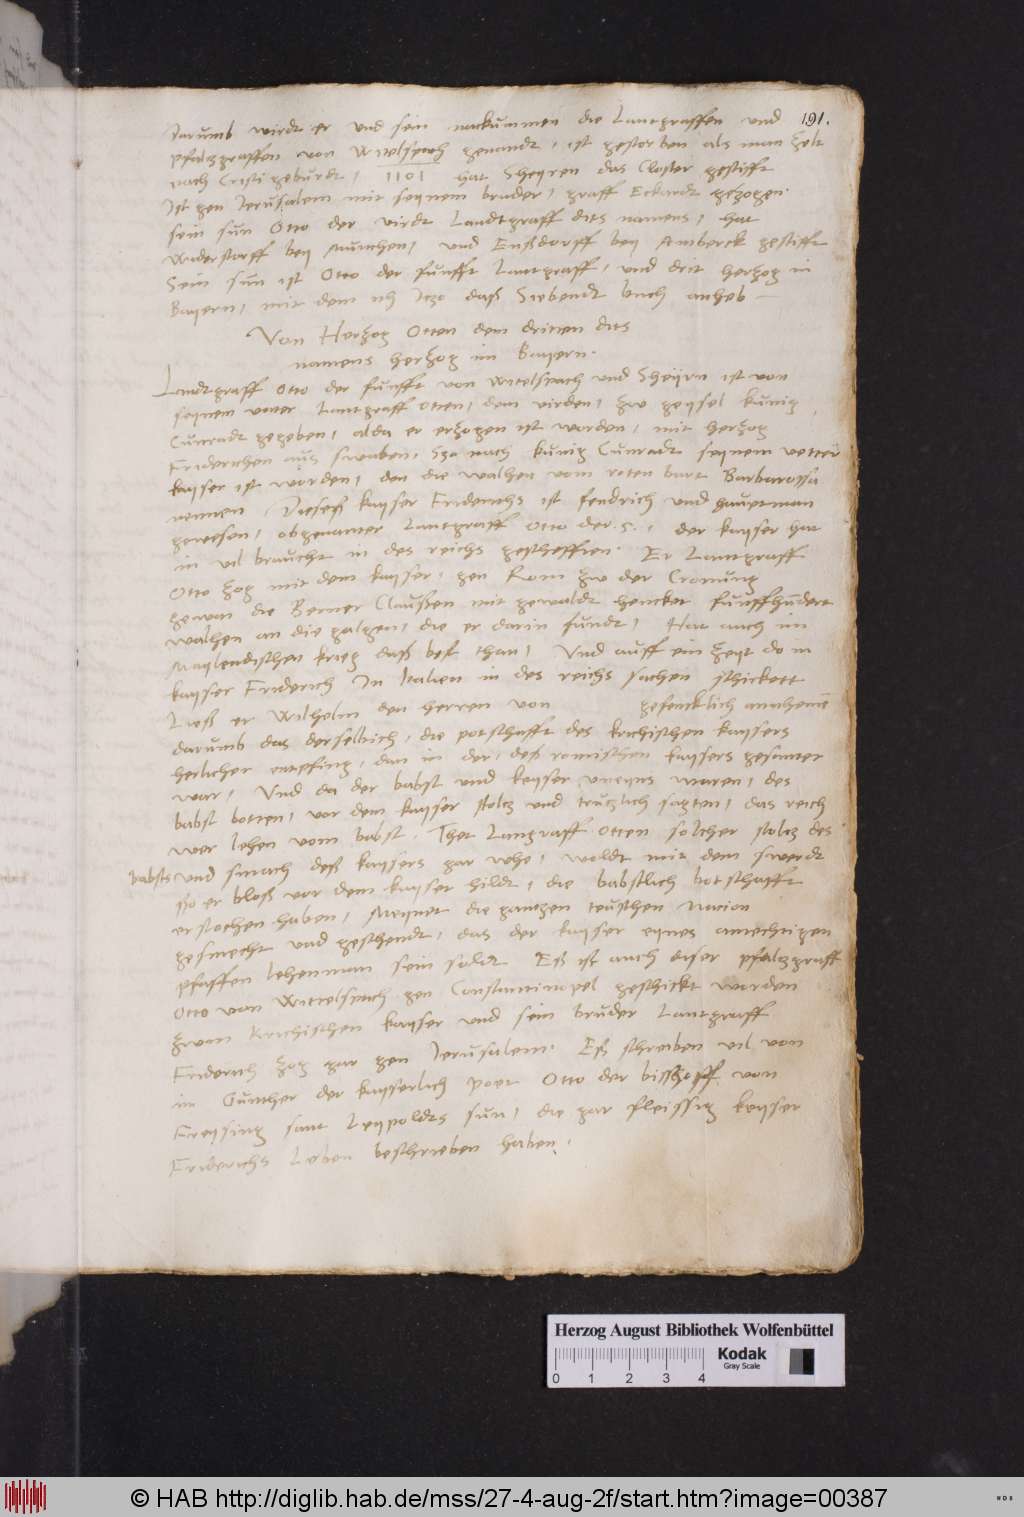 191.
Darumb wirdt er und sein nackummen die Lantgraffen und
pfalzgraffen von Witelspach genandt, ist gestorben als man zelt
nach Cristi geburdt, 1101 hat Sheyren das Closter gestifft
Ist gen Jerusalem mit seynem bruder, graff Eckardt gezogen.
sein sun Otto der virdt Landtgraff dits namens, hat
Widerstorff bey Munchen, und Enßdorff bey Amberck gestifft
Sein sun ist Otto der funfft Lantgraff, und drit herzog in
Bayern, mit dem ich Itzo daß Siebendt buch anheb
Von Herzog Otten dem dritten dits
namens herzog im Bayern.
Landtgraff Otto der funfft von Witelspach und Sheyrn ist von
seynem vater Lantgraff Otten, dem virden, zw geysel kunig
Cunradt gegeben, alda er erzogen ist worden, mit herzog
Friderichen auß swaben, Szo nach kunig Cunradt seynem vetter
kayser ist worden, den die walhen vom roten bart Barbarossa
nennen. Dieseß kayser Friderichs ist fendrich und hauptman
gewesen, obgenanter Lantgraff Otto der .5., der kayser hat
in vil braucht in des reichs geschefften. Er Lantgraff
Otto zog mit dem kayser, gen Rom zw der Cronung
gewan die Berner Claußen mit gewaldt hencket funffhundert
walhen an die galgen, die er darin fundt, Hat auch im
Maylendischen krieg daß best than, Und auff ein zeyt do in
kayser Friderich In Italien in des reichs sachen schickett
Ließ er Wilhelm den herren von gefencklich annhemē
darumb das derselbich, die potschafft des krichischen kaysers
herlicher entpfing, dan in der, deß romischen kaysers gesanter
war, Und da der babst und keyser uneyns waren, des
babst botten, vor dem kayser stoltz und trutzlich sagten, das reich
wer lehen vom babst. Thet Langraff Otten solcher stoltz des
babsts und smach deß kaysers gar whe, woldt mit dem swerdt
sso er bloß vor dem kayser hildt, die babstlich botschafft
erstochen haben, Meynet die gantzen teutschen Nacion
gesmecht und geschendt, das der kayser eynes amechtigen
pfaffen lehenman sein soldt. Eß ist auch diser pfaltzgraff
Otto von Wittelspach gen Constantinopel geschickt worden
zwm krichischen kayser und sein bruder Lantgraff
Friderich zog gar gen Jerusalem. Eß schreiben vil von
im Gunther der kayserlich poet Otto der bisschoff von
Freysing sant Leypoldts sun, die gar fleissig keyser
Friderichs Leben beschrieben haben.
Herzog August Bibliothek Wolfenbüttel
Kodak
Gray Scale
0 1 2 3 4
© HAB http://diglib.hab.de/mss/27-4-aug-2f/start.htm?image=00387